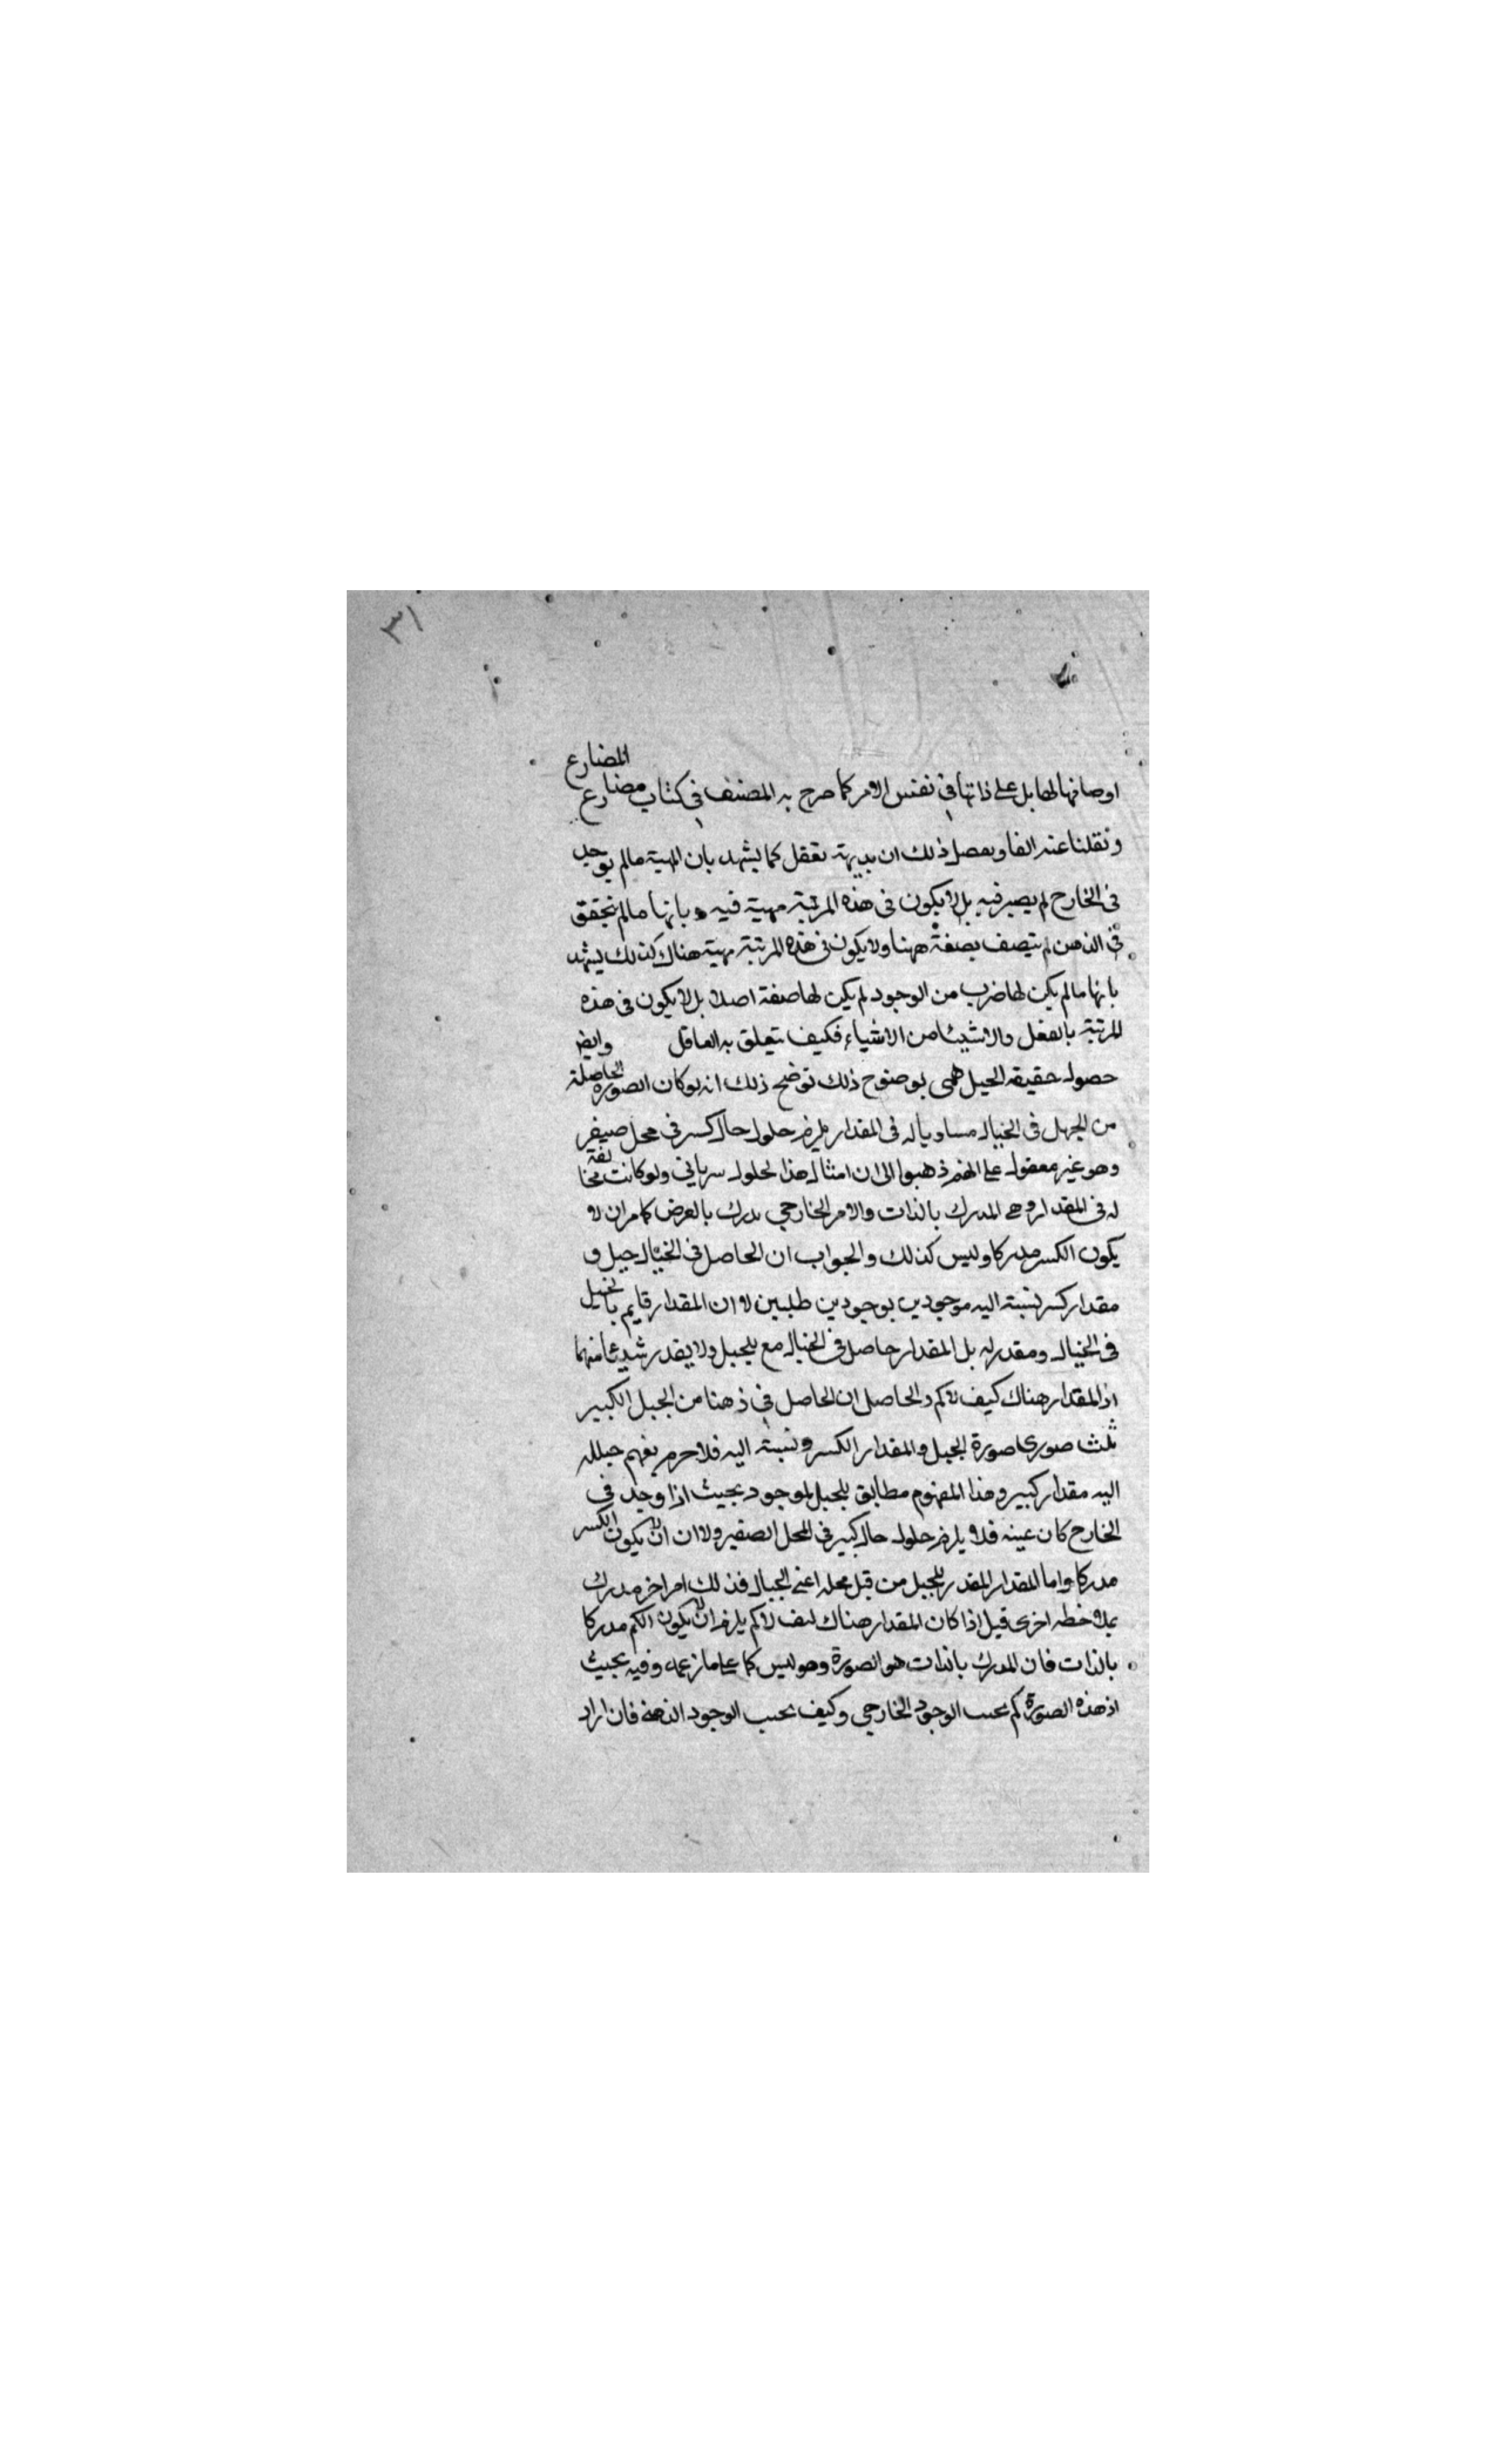 ٣١
المضارع
اوصافها لها بل على ذاتها في نفس الامر كما صرح به المصنف في كتاب مضارع
ونقلنا عنه انفا وبعصل ذلك ان بديهة تعقل كما يشهد بان المهية مالم يوجد
في الخارج لم يصير فيه بل لا يكون في هذه المرتبة مهية فيه وبانها مالم تتحقق
في الذهن لم يتصف بصفة ههنا ولا يكون في هذه المرتبة مهية هناك كذلك يشهد
بانها مالم يكن لها ضرب من الوجود لم يكن لها صفة اصلا بل لا يكون في هذه
المرتبة بالفعل ولا شيئا من الاشياء فكيف يتعلق به العاقل وايض
حصول حقيقة الجبل بوضوح ذلك توضح ذلك انه لو كان الصورة الحاصلة
من الجبل في الخيال مساويا له في المقدار يلزم حلول حال كسر في محل صيفر
وهو غير معقول على انهم ذهبوا الى ان امثال هذا لحلول سرياني ولو كانت مخالفة
له في المقدار وهي المدرك بالذات والامر الخارجي يدرك بالعرض كما مر ان لا
يكون الكسر مدركا وليس كذلك والجواب ان الحاصل في الخيال جبل و
مقدار كسر نسبته اليه موجودين بوجودين طلبين لا ان المقدار قايم بالخيل
في الخيال ومقدر له بل المقدار حاصل في الخيال مع للجبل ولا يقدر شيئا منهما
اذ المقدار هناك كيف لا كم والحاصل ان الحاصل في ذهنا من الجبل الكبير
ثلث صورى صورة الجبل والمقدار الكسر ونسبته اليه فلا جرم يفهم جبل له
اليه مقدار كبير وهذا المفهوم مطابق للجبل لموجود بحيث اذا وجد في
الخارج كان عينه فلا يلزم حلول حال كبير في المحل الصغير ولا ان ان لا يكون الكسر
مدركا واما المقدار المقدر للجبل من قبل محله اعني الجبال فذلك امر اخر مدرك
بملاحظه اخرى قيل اذا كان المقدار هناك كيف لا كم يلزم ان لا يكون الكم مدركا
بالذات فان المدرك بالذات هو الصورة وهو ليس كما على ما زعمه وفيه بحيث
اذ هذه الصورة كم بحسب الوجود الخارجي وكيف بحسب الوجود الذهني فان اراد